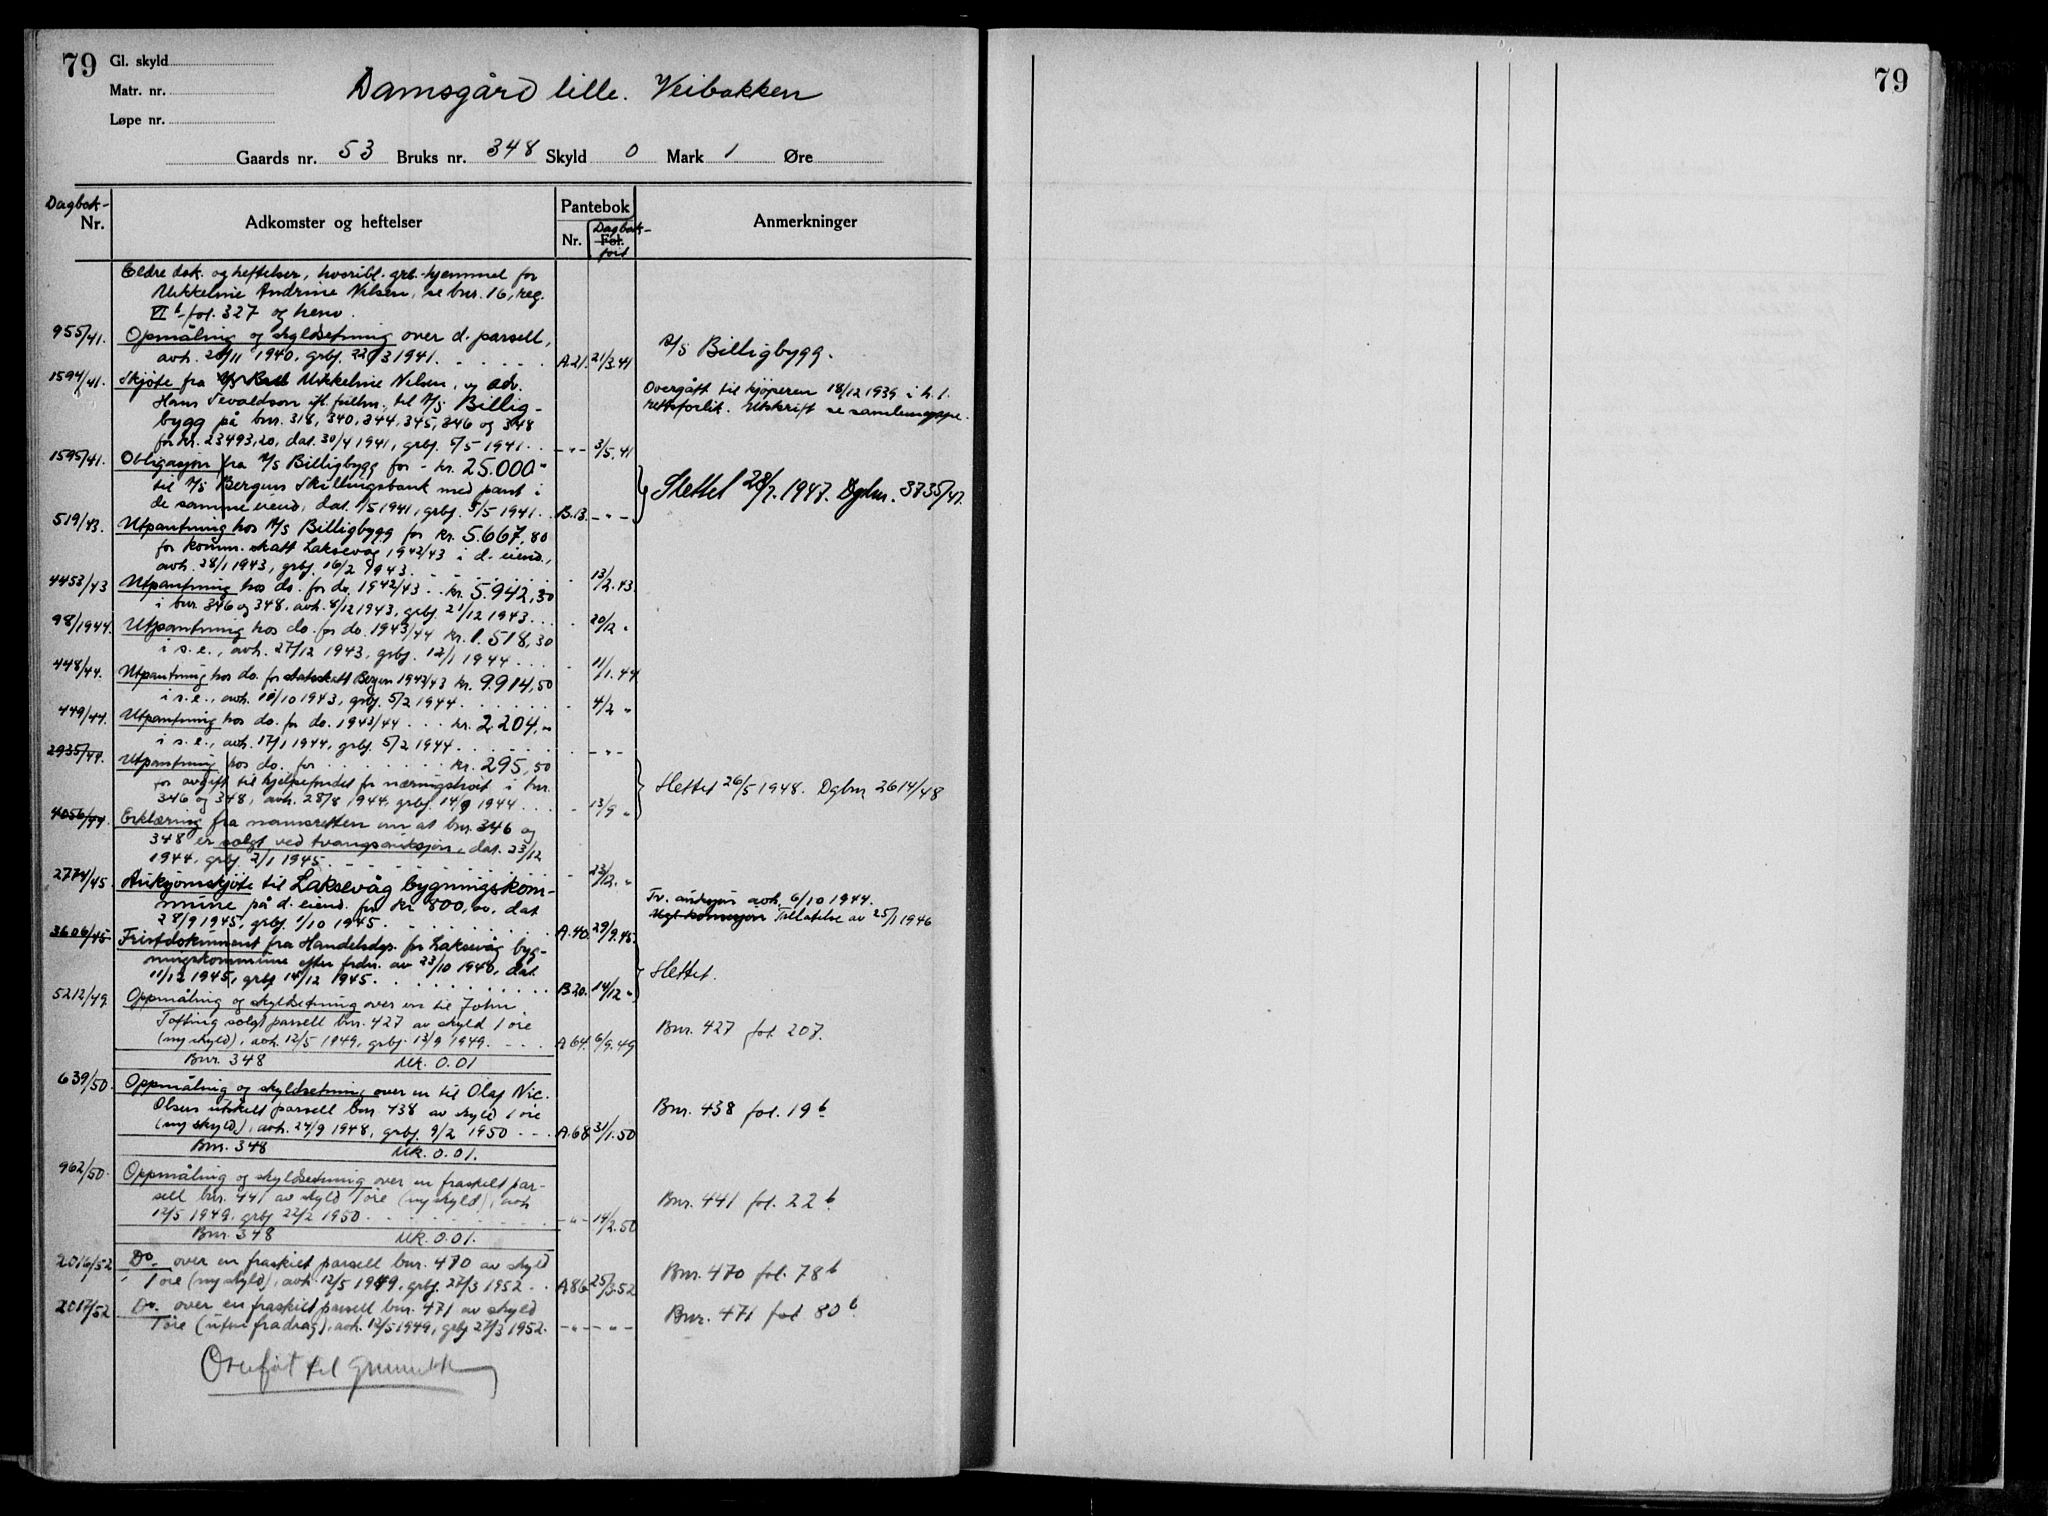 79 Gl. skyld
Matr. nr.
Løpe nr.
Damsgård lille. Veibakken
Gaards nr. 53 Bruks nr. 348 Skyld 0 Mark 1 Øre
79
Dagbok-
Nr. Adkomster og heftelser Pantebok Nr. Fol. Dagbok-ført Anmerkninger
Eldre dok. og heftelser, hvoribl. grb. hjemmel for
Mikkeline Andrine Nilsen, se bnr. 16, reg.
VI b fol. 327 og henv.
955/41. Opmåling og skyldsetning over d. parsell,
avh. 20/11 1940, grbf. 22/3 1941. A.21. 21/3.41 A/S Billigbygg.
1594/41. Skjøte fra Mikkeline Nilsen, og adv.
Hans Tevaldson ifl. fullm., til A/S Billig-
bygg på bnr. 318, 340, 344, 345, 346 og 348
for kr. 23493,20, dat. 30/4 1941, grbf. 5/5 1941. -"- 3/5.41
Overgått til kjøperen 18/12 1939 i h. t.
rettsforlik. Utskrift se samlemappe.
1595/41. Obligasjon fra A/S Billigbygg for kr. 25.000"
til A/S Bergens Skillingsbank med pant i
de samme eiend., dat. 1/5 1941, grbf. 5/5 1941. B.13. -"-
Slettet 28/7. 1947. Dgbnr. 3735/47.
519/43. Utpantning hos A/S Billigbygg for kr. 5.667,80
for komm. skatt Laksevåg 1942/43 i d. eiend.,
avh. 28/1 1943, grbf. 16/2 1943. 13/2.43.
4453/43 Utpantning hos do. for do. 1942/43 kr. 5.942,30
i bnr. 346 og 348, avh. 8/12 1943, grbf. 21/12 1943. 20/12 "
98/1944. Utpantning hos do. for do. 1943/44 kr. 1.518,30
i s. e., avh. 27/12 1943, grbf. 12/1 1944. 11/1.44
448/44. Utpantning hos do. for statsskatt Bergen 1942/43 kr. 9.914,50
i s. e., avh. 11/10 1943, grbf. 5/2 1944. 4/2 "
449/44. Utpantning hos do. for do. 1943/44 kr. 2.204,"
i s. e., avh. 17/1 1944, grbf. 5/2 1944. -"-
2935/44. Utpantning hos do. for kr. 295,50
for avgift til hjelpefondet for næringslivet i bnr.
346 og 348, avh. 28/8 1944, grbf. 14/9 1944. 13/9 "
Slettet 26/5 1948. Dgbnr 2614/48
4056/44. Erklæring fra namsretten om at bnr. 346 og
348 er solgt ved tvangsauksjon, dat. 23/12
1944, grbf. 2/1 1945. 23/12. "
2774/45. Auksjonsskjøte til Laksevåg bygningskom-
mune på d. eiend. for kr 800,00, dat
28/9 1945, grbf. 1/10 1945. A.40. 29/9.45.
Tv. auksjon avh. 6/10 1944.
Tillatelse av 25/1 1946
3606/45. Fristdokument fra Handelsdep. for Laksevåg byg-
ningskommune efter frdn. av 23/10 1940, dat.
11/12 1945, grbf. 14/12 1945. B20. 14/12 "
Slettet.
5212/49. Oppmåling og skyldsetning over en til John
Tofting solgt parsell bnr. 427 av skyld 1 øre
(ny skyld), avh. 12/5 1949, grbf. 13/9 1949. A64. 6/9.49 Bnr. 427 fol. 207.
Bnr. 348 Mk. 0.01
639/50. Oppmåling og skyldsetning over en til Olaf Nic.
Olsen utskilt parsell bnr. 438 av skyld 1 øre
(ny skyld), avh. 24/9 1948, grbf. 9/2 1950 A.68 31/1.50 Bnr. 438 fol. 19 b.
Bnr. 348 Mk. 0.01.
962/50. Oppmåling og skyldsetning over en fraskilt par-
sell bnr. 441 av skyld 1 øre (ny skyld), avh
12/5 1949, grbf 22/2 1950. -"- 14/2.50 Bnr. 441 fol. 22 b.
Bnr. 348 Mk. 0.01.
2016/52 Do. over en fraskilt parsell bnr. 470 av skyld
1 øre (ny skyld), avh. 12/5 1949, grbf. 27/3 1952. A86 25/3.52 Bnr. 470 fol. 78 b
2017/52 Do. over en fraskilt parsell bnr. 471 av skyld
1 øre (uten fradrag), avh. 12/5 1949, grbf 27/3 1952. -"- -"- Bnr. 471 fol 80 b.
Overført til